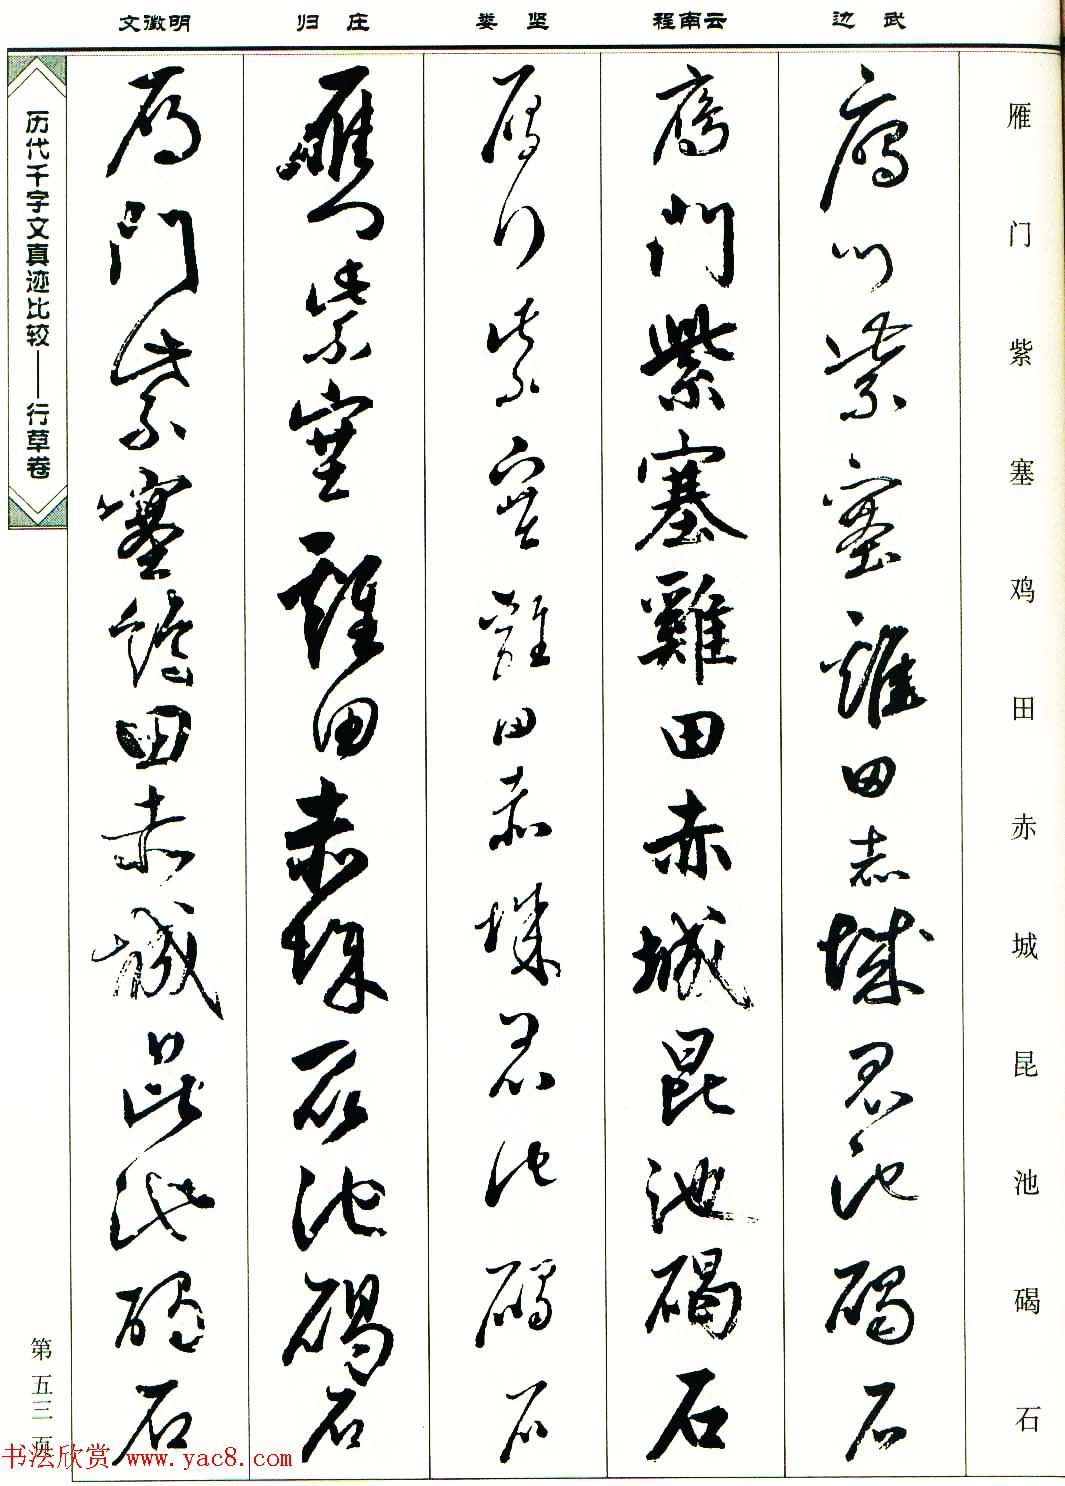 文徵明 归庄 娄坚 程南云 边武
雁门紫塞鸡田赤城昆池碣石
鴈門紫塞雞田赤城昆池碣石
鴈門紫塞雞田赤城昆池碣石
鴈門紫塞雞田赤城昆池碣石
雁門紫塞雞田赤城昆池碣石
鴈門紫塞鷄田赤城昆池碣石
历代千字文真迹比较——行草卷
第五三页
书法欣赏 www.yac8.com